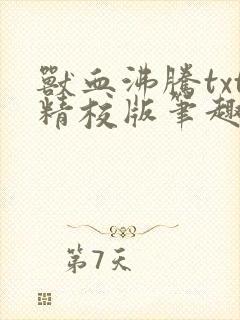 獸血沸騰txt
精校版筆趣
第7天